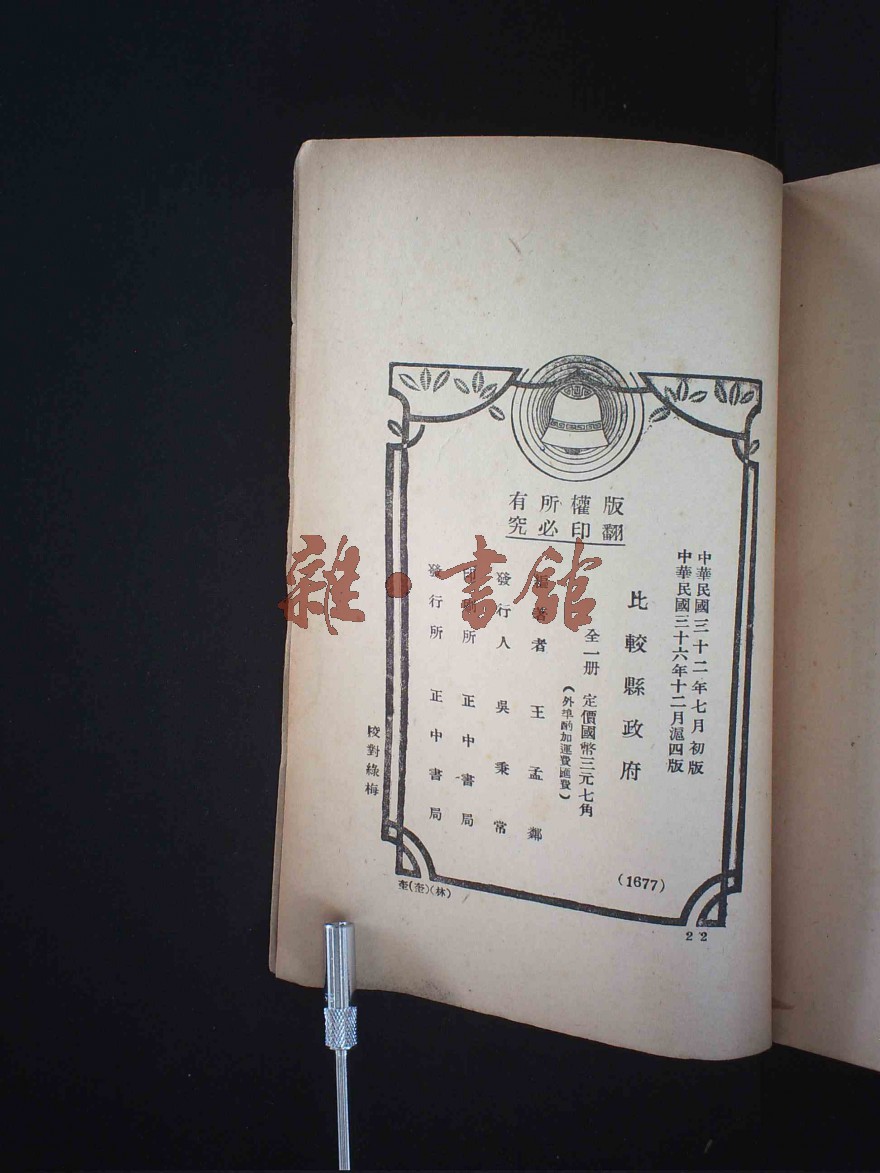 版權所有
翻印必究
中華民國三十二年七月初版
中華民國三十六年十二月滬四版
比較縣政府
全一册 定價國幣三元七角
(外埠酌加運費匯費)
編著者 王孟鄰
發行人 吳秉常
印刷所 正中書局
發行所 正中書局
校對綠梅
(1677)
(林)
22
雜·書館